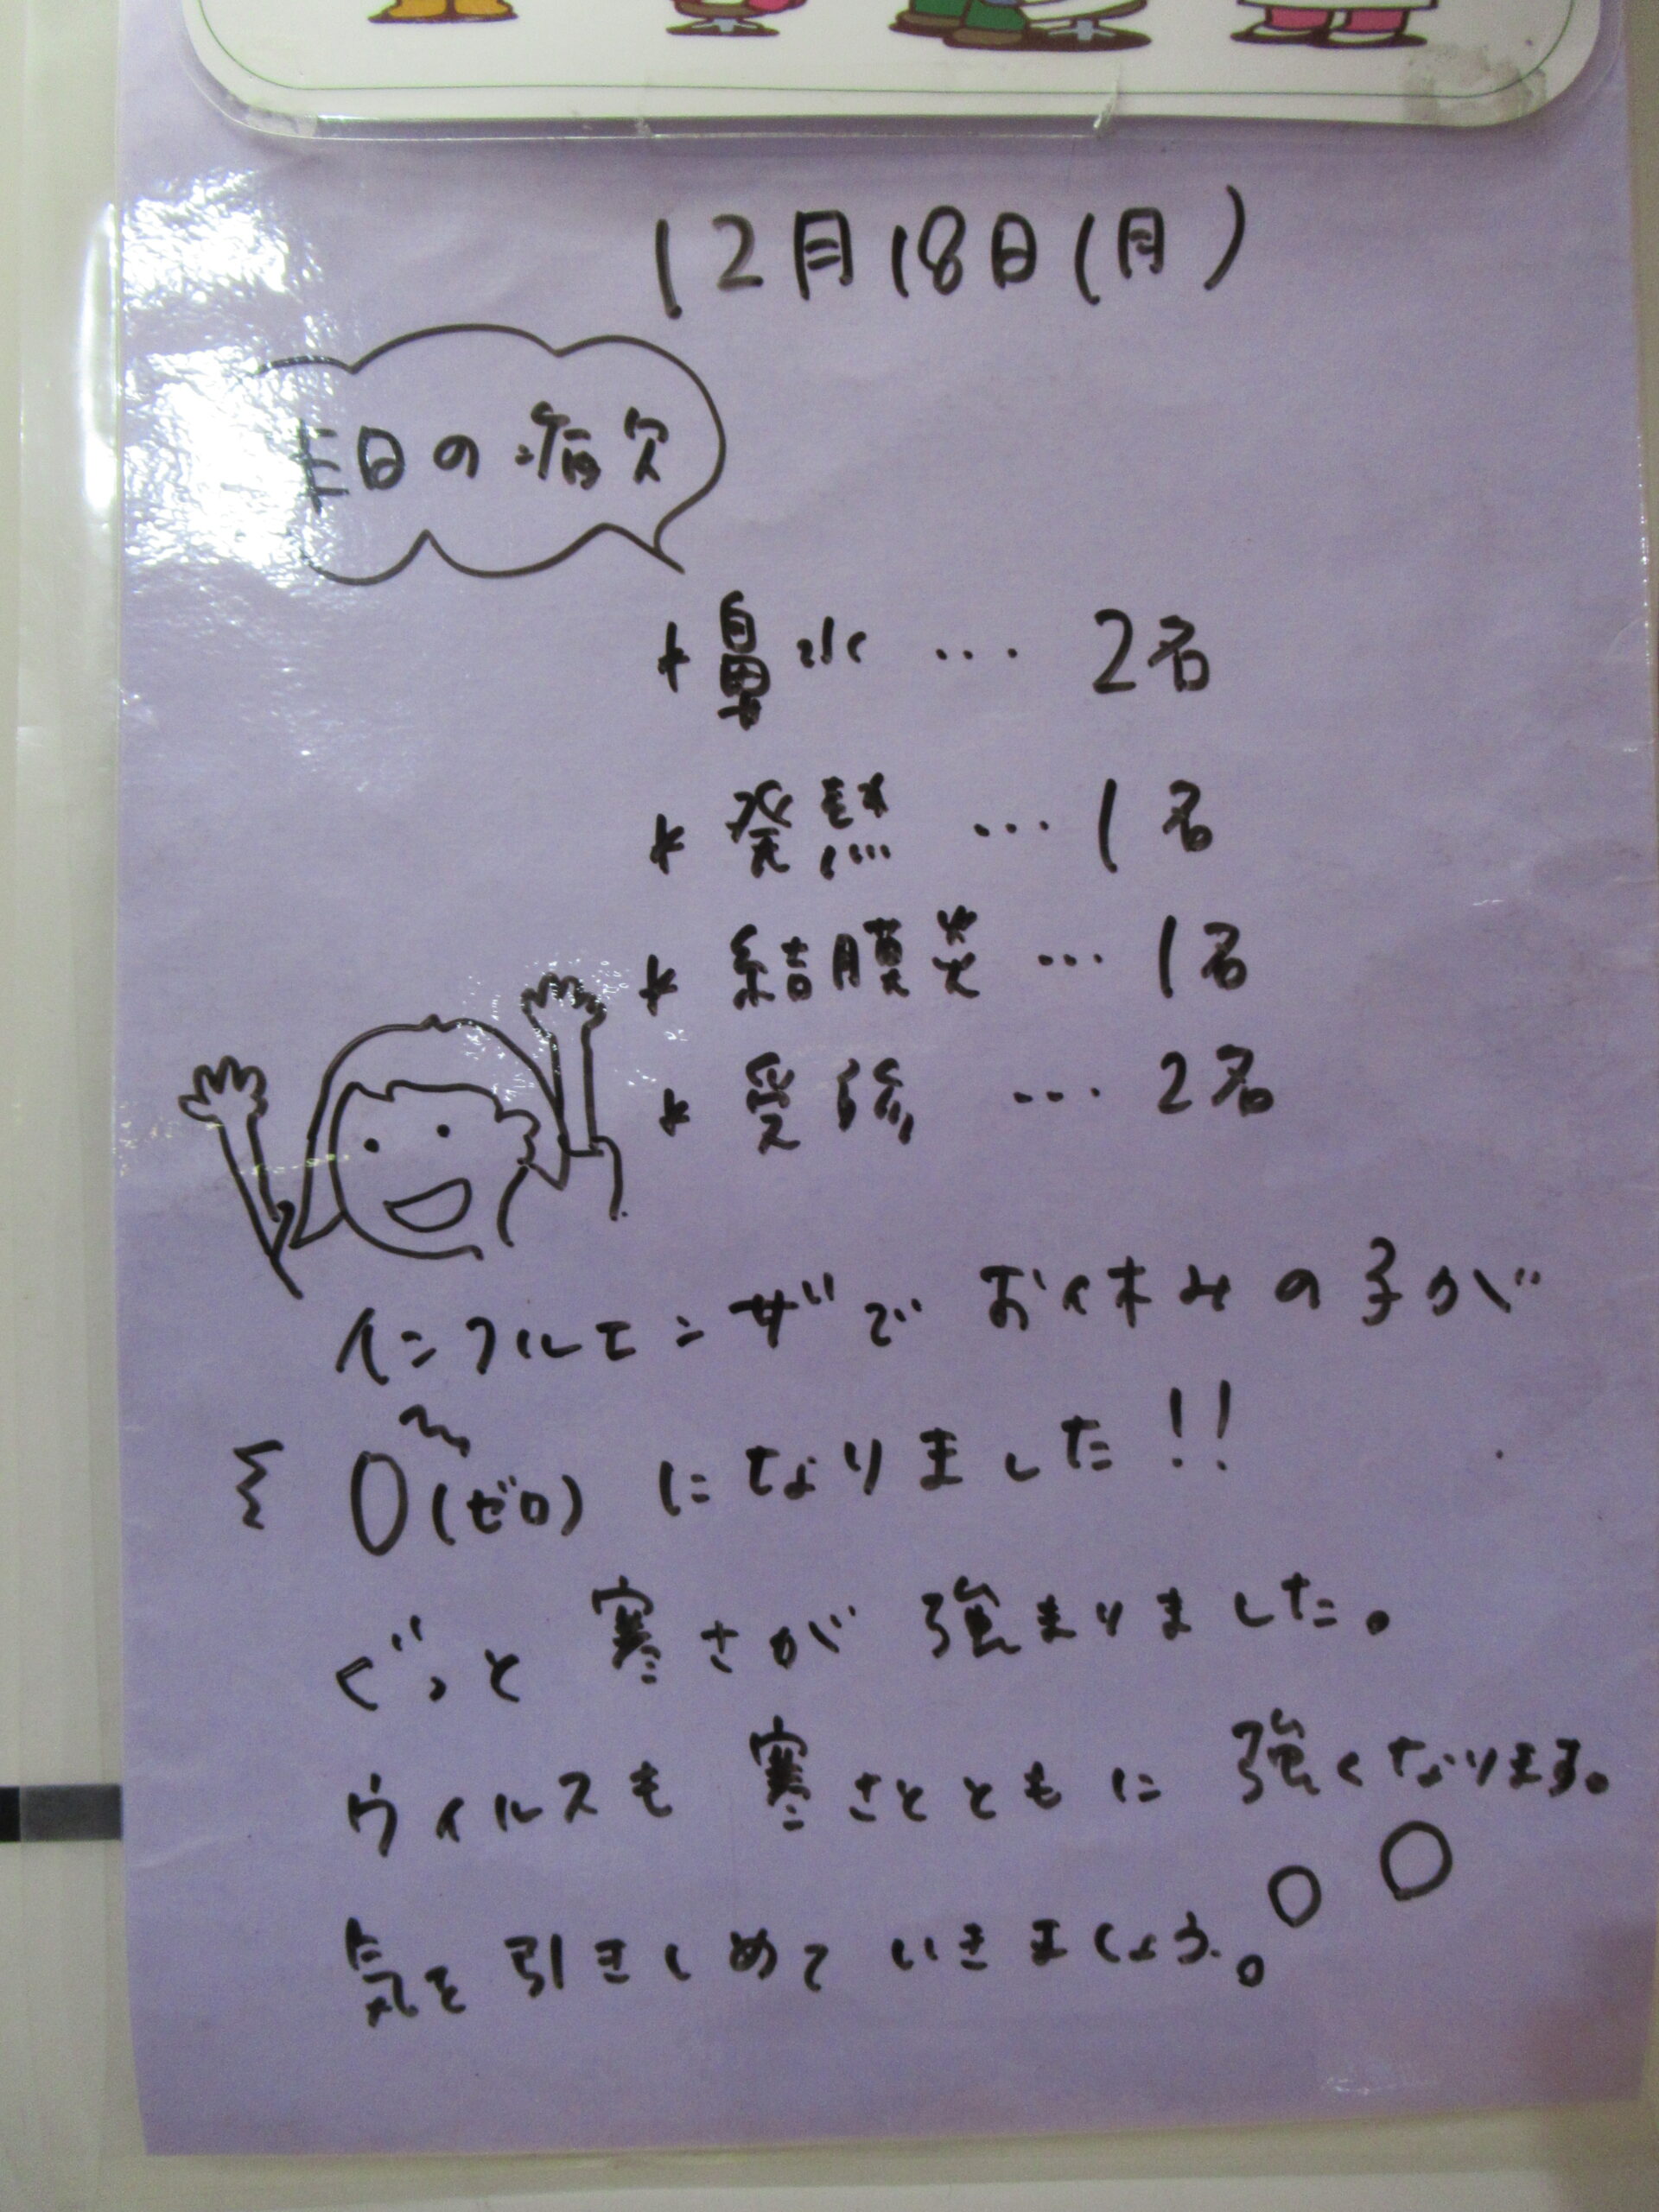 12月18日(月)
日の病欠
* 鼻水 … 2名
* 発熱 … 1名
* 結膜炎 … 1名
* 受診 … 2名
インフルエンザで お休みの子が
0(ゼロ) になりました!!
ぐっと 寒さが 強まりました。
ウィルスも 寒さとともに 強くなります。
気を引きしめて いきましょう。